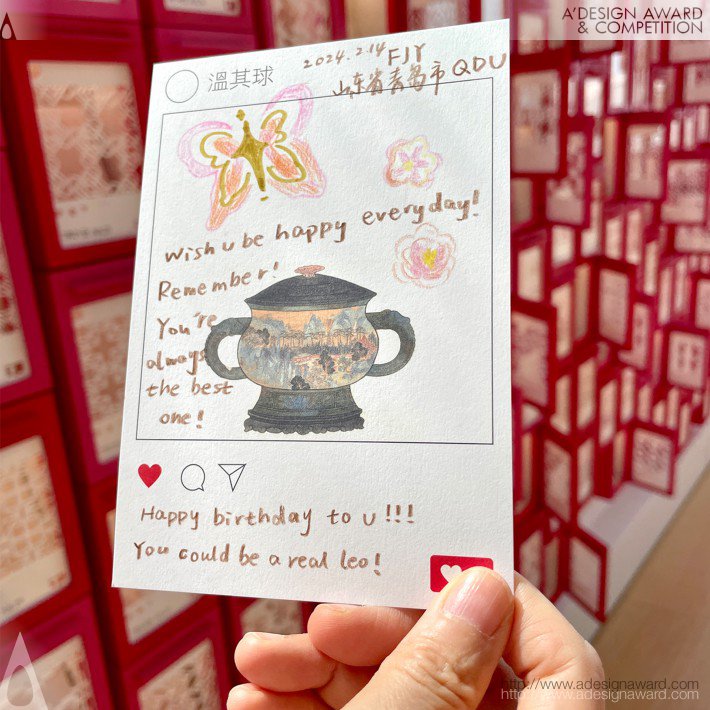 A'DESIGN AWARD
& COMPETITION
2024.2.14 FJY
溫其球
山东省青岛市 QDU
Wish u be happy everyday!
Remember!
You're
always
the best
one!
Happy birthday to u!!!
You could be a real leo!
http://www.adesignaward.com
http://www.adesignaward.com